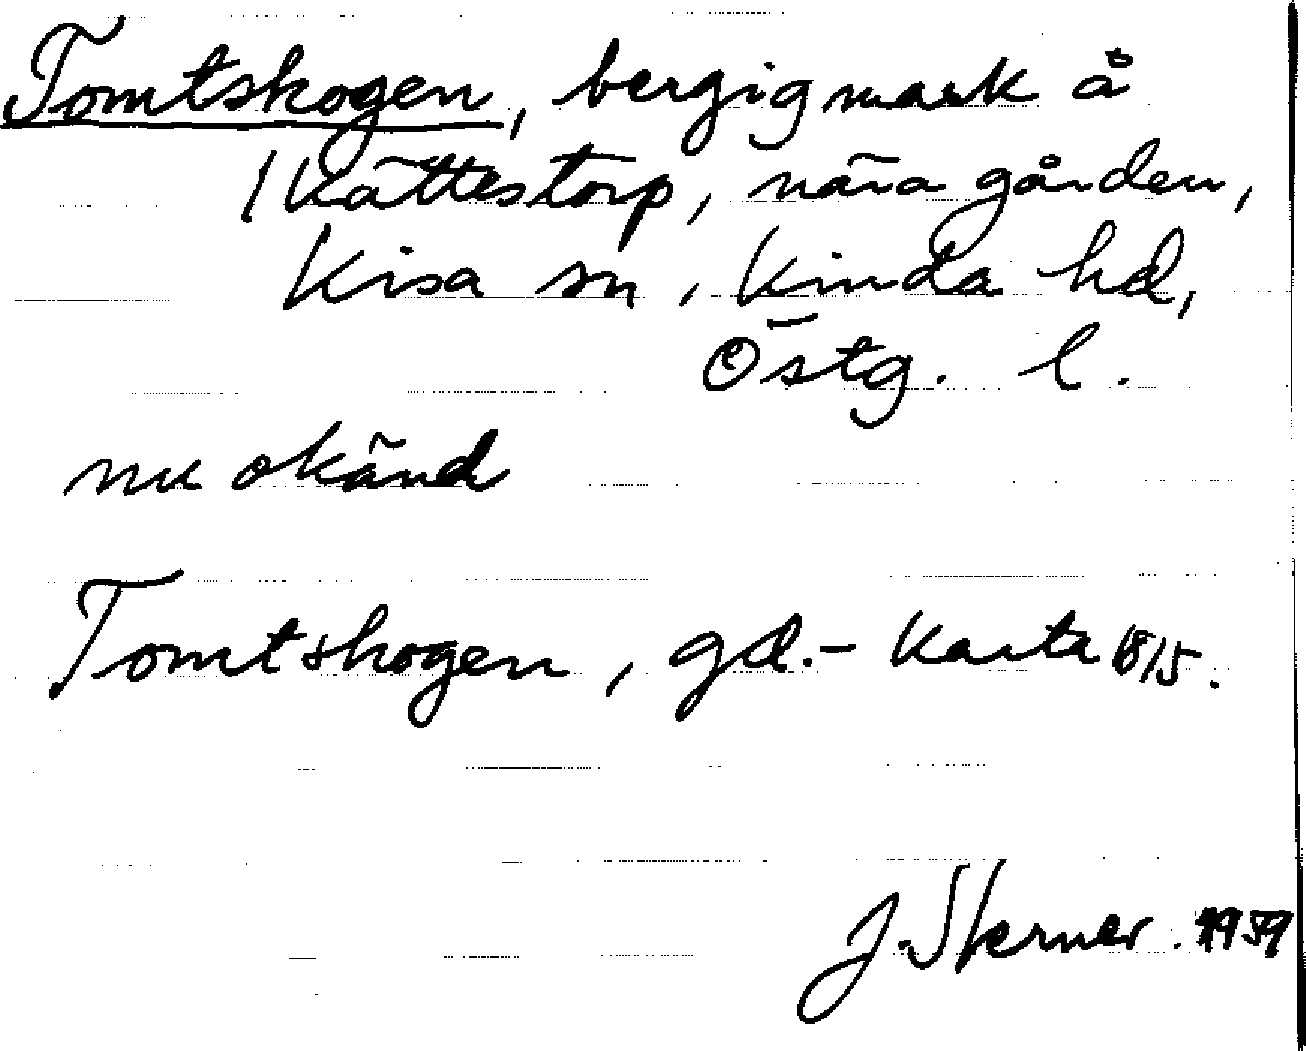 Tomtskogen, bergig mark å
1 Kättestorp, nära gården,
Kisa sn, Kinda hd,
Östg. l.
nu okänd
Tomtskogen, gd.- Karta 1815.
J. Sterner. 1959